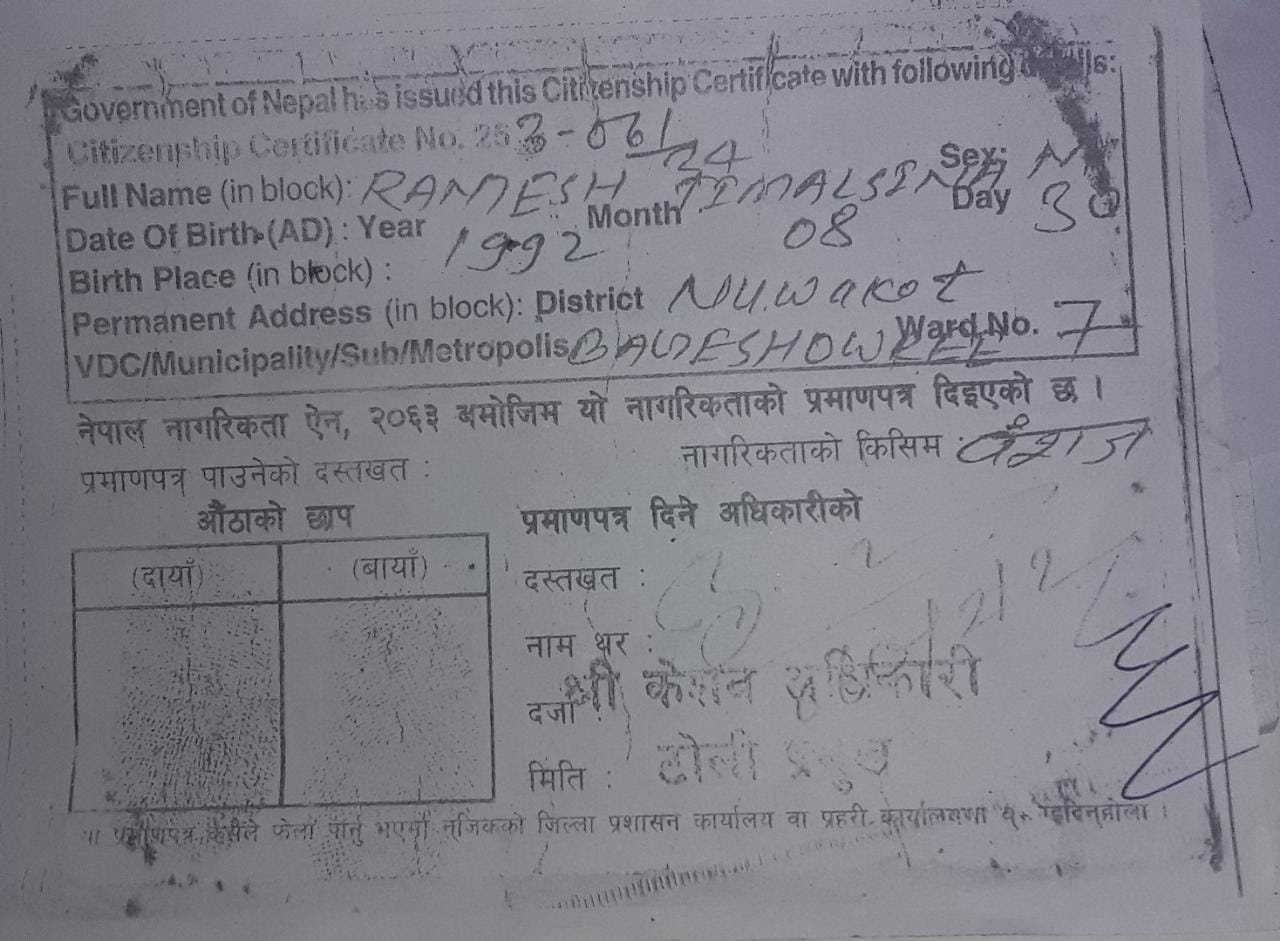 Government of Nepal has issued this Citizenship Certificate with following details:
Citizenship Certificate No. 253-061/ Sex: M
Full Name (in block): RAMESH TIMALSINA
Date Of Birth (AD) : Year 1992 Month 08 Day 30
Birth Place (in block) :
Permanent Address (in block): District Nuwakot
VDC/Municipality/Sub/Metropolis Ward No. 7
नेपाल नागरिकता ऐन, २०६३ बमोजिम यो नागरिकताको प्रमाणपत्र दिइएको छ ।
नागरिकताको किसिम : वंशज
प्रमाणपत्र पाउनेको दस्तखत :
औंठाको छाप
(दायाँ) (बायाँ)
प्रमाणपत्र दिने अधिकारीको
दस्तखत :
नाम थर :
श्री केशव अधिकारी
दर्जा :
टोली प्रमुख
मिति :
प्रमाणपत्र कसैले फेला पार्नु भएमा नजिकको जिल्ला प्रशासन कार्यालय वा प्रहरी कार्यालयमा ।